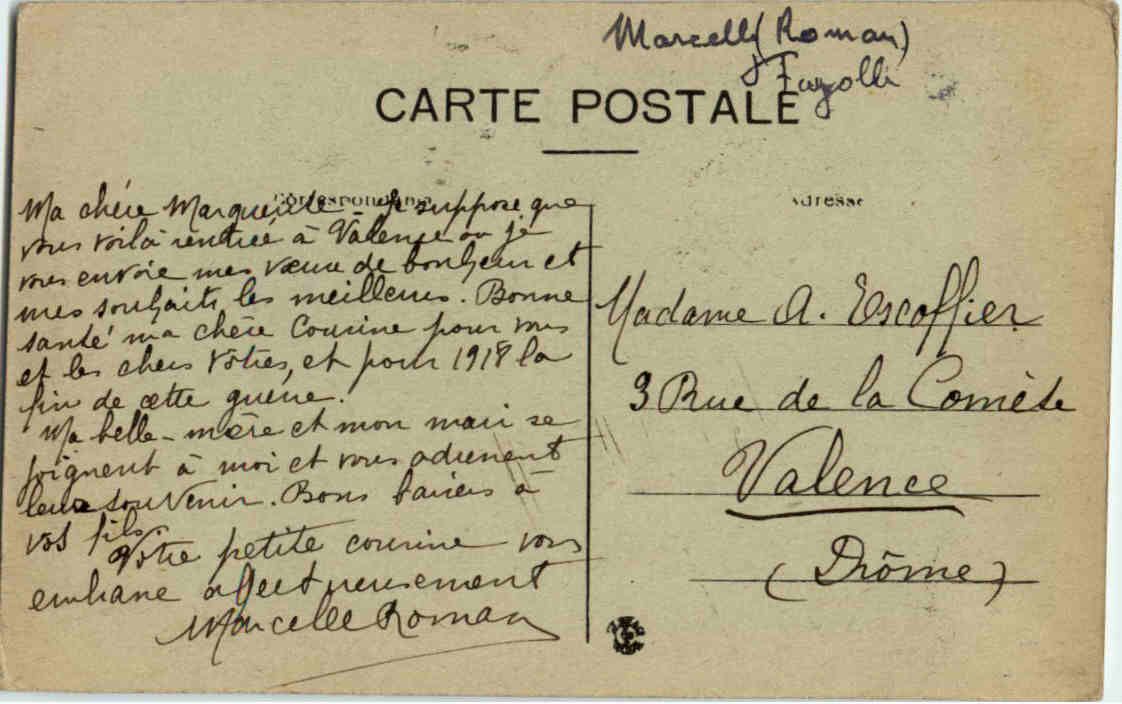 Marcelle (Roman)
Fayolle
CARTE POSTALE
Correspondance
Adresse
Ma chère Marguerite - Je suppose que
vous voilà rentrée à Valence où je
vous envoie mes vœux de bonheur et
mes souhaits les meilleurs. Bonne
santé ma chère Cousine pour vous
et les chers vôtres, et pour 1918 la
fin de cette guerre!
Ma belle-mère et mon mari se
joignent à moi et vous adressent
leur souvenir. Bons baisers à
vos fils.
Votre petite cousine vous
embrasse affectueusement
Marcelle Roman
Madame A. Escoffier
3 Rue de la Comète
Valence
(Drôme)